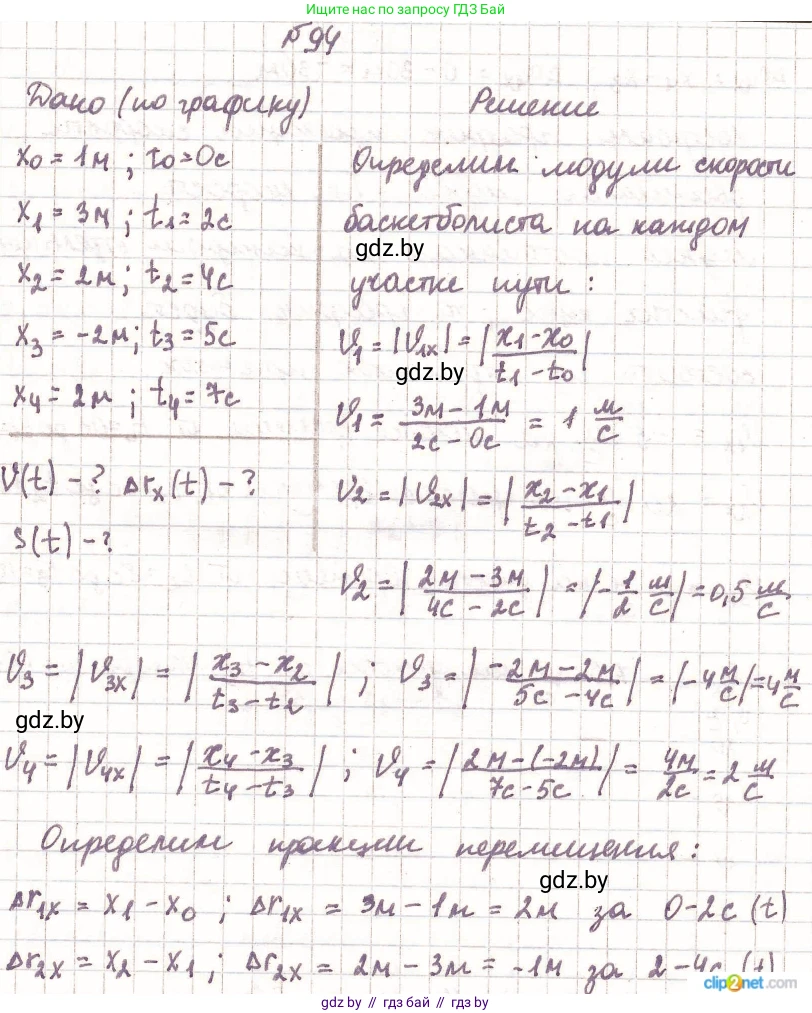 Ищите нас по запросу ГДЗ Бай
№94
Дано (по графику)
Решение
x₀ = 1м ; t₀ = 0с
x₁ = 3м ; t₁ = 2с
x₂ = 2м ; t₂ = 4с
x₃ = -2м ; t₃ = 5с
x₄ = 2м ; t₄ = 7с
V(t) - ? Δrₓ(t) - ?
S(t) - ?
Определим модули скорости
баскетболиста на каждом
gdz.by
участке пути :
V₁ = |V₁ₓ| = |(x₁ - x₀)/(t₁ - t₀)|
gdz.by
V₁ = (3м - 1м)/(2с - 0с) = 1 м/с
V₂ = |V₂ₓ| = |(x₂ - x₁)/(t₂ - t₁)|
V₂ = |(2м - 3м)/(4с - 2с)| = |-1/2 м/с| = 0,5 м/с
V₃ = |V₃ₓ| = |(x₃ - x₂)/(t₃ - t₂)| ; V₃ = |(-2м - 2м)/(5с - 4с)| = |-4 м/с| = 4 м/с
gdz.by
V₄ = |V₄ₓ| = |(x₄ - x₃)/(t₄ - t₃)| ; V₄ = |(2м - (-2м))/(7с - 5с)| = 4м/2с = 2 м/с
Определим проекции перемещения :
gdz.by
Δr₁ₓ = x₁ - x₀ ; Δr₁ₓ = 3м - 1м = 2м за 0-2с (t)
Δr₂ₓ = x₂ - x₁ ; Δr₂ₓ = 2м - 3м = -1м за 2-4с (t)
clip2net.com
gdz by // гдз бай // гдз by